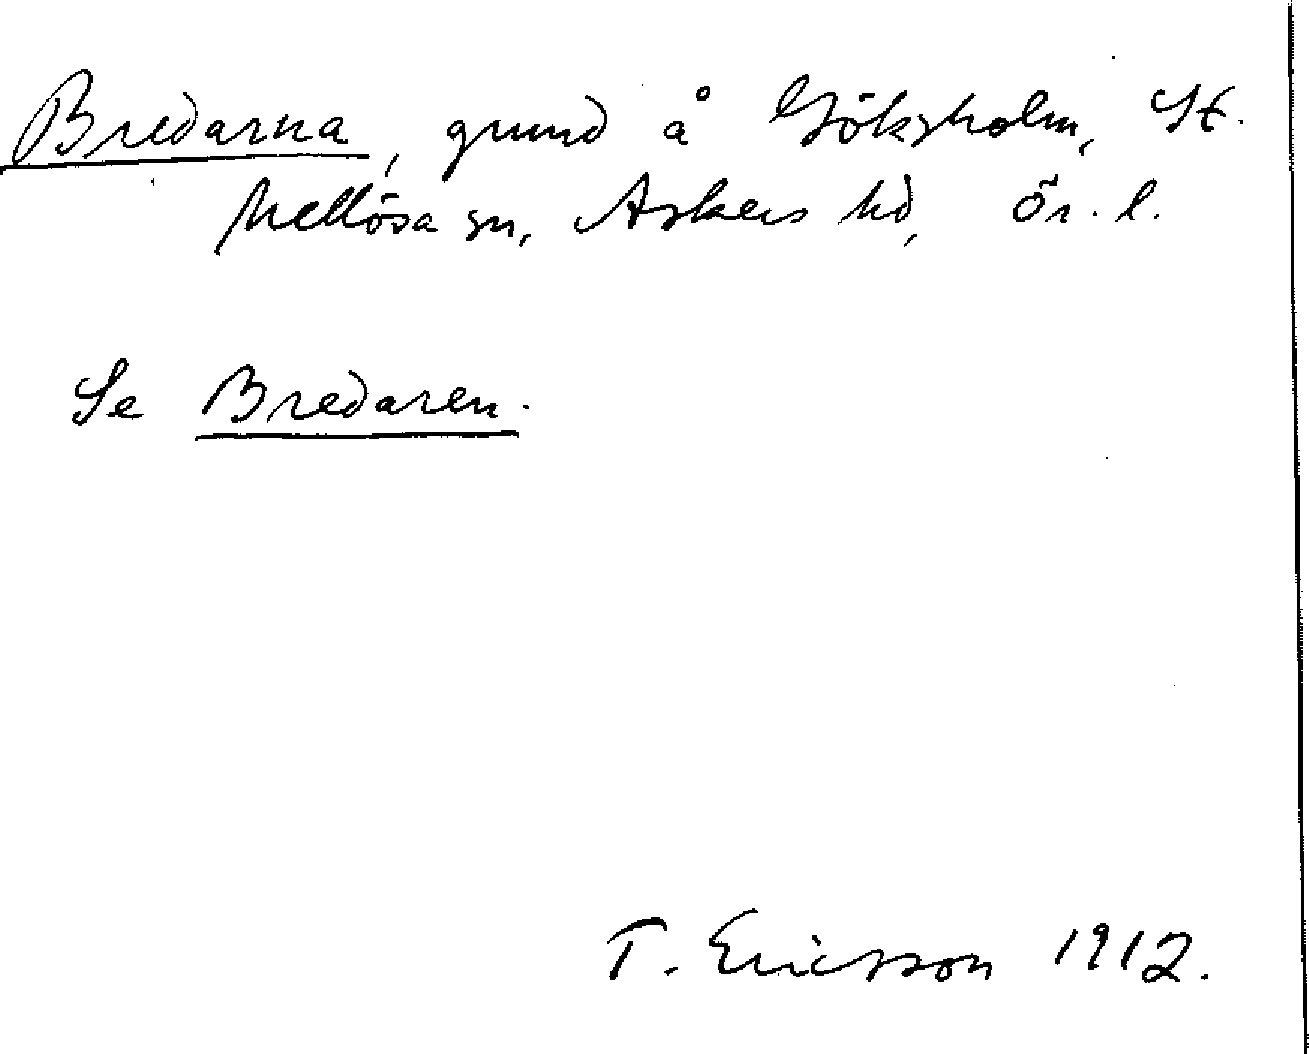 Bredarna, grund å Göksholm, St.
Mellösa sn, Askers hd, Ör. l.
Se Bredaren.
T. Ericsson 1912.